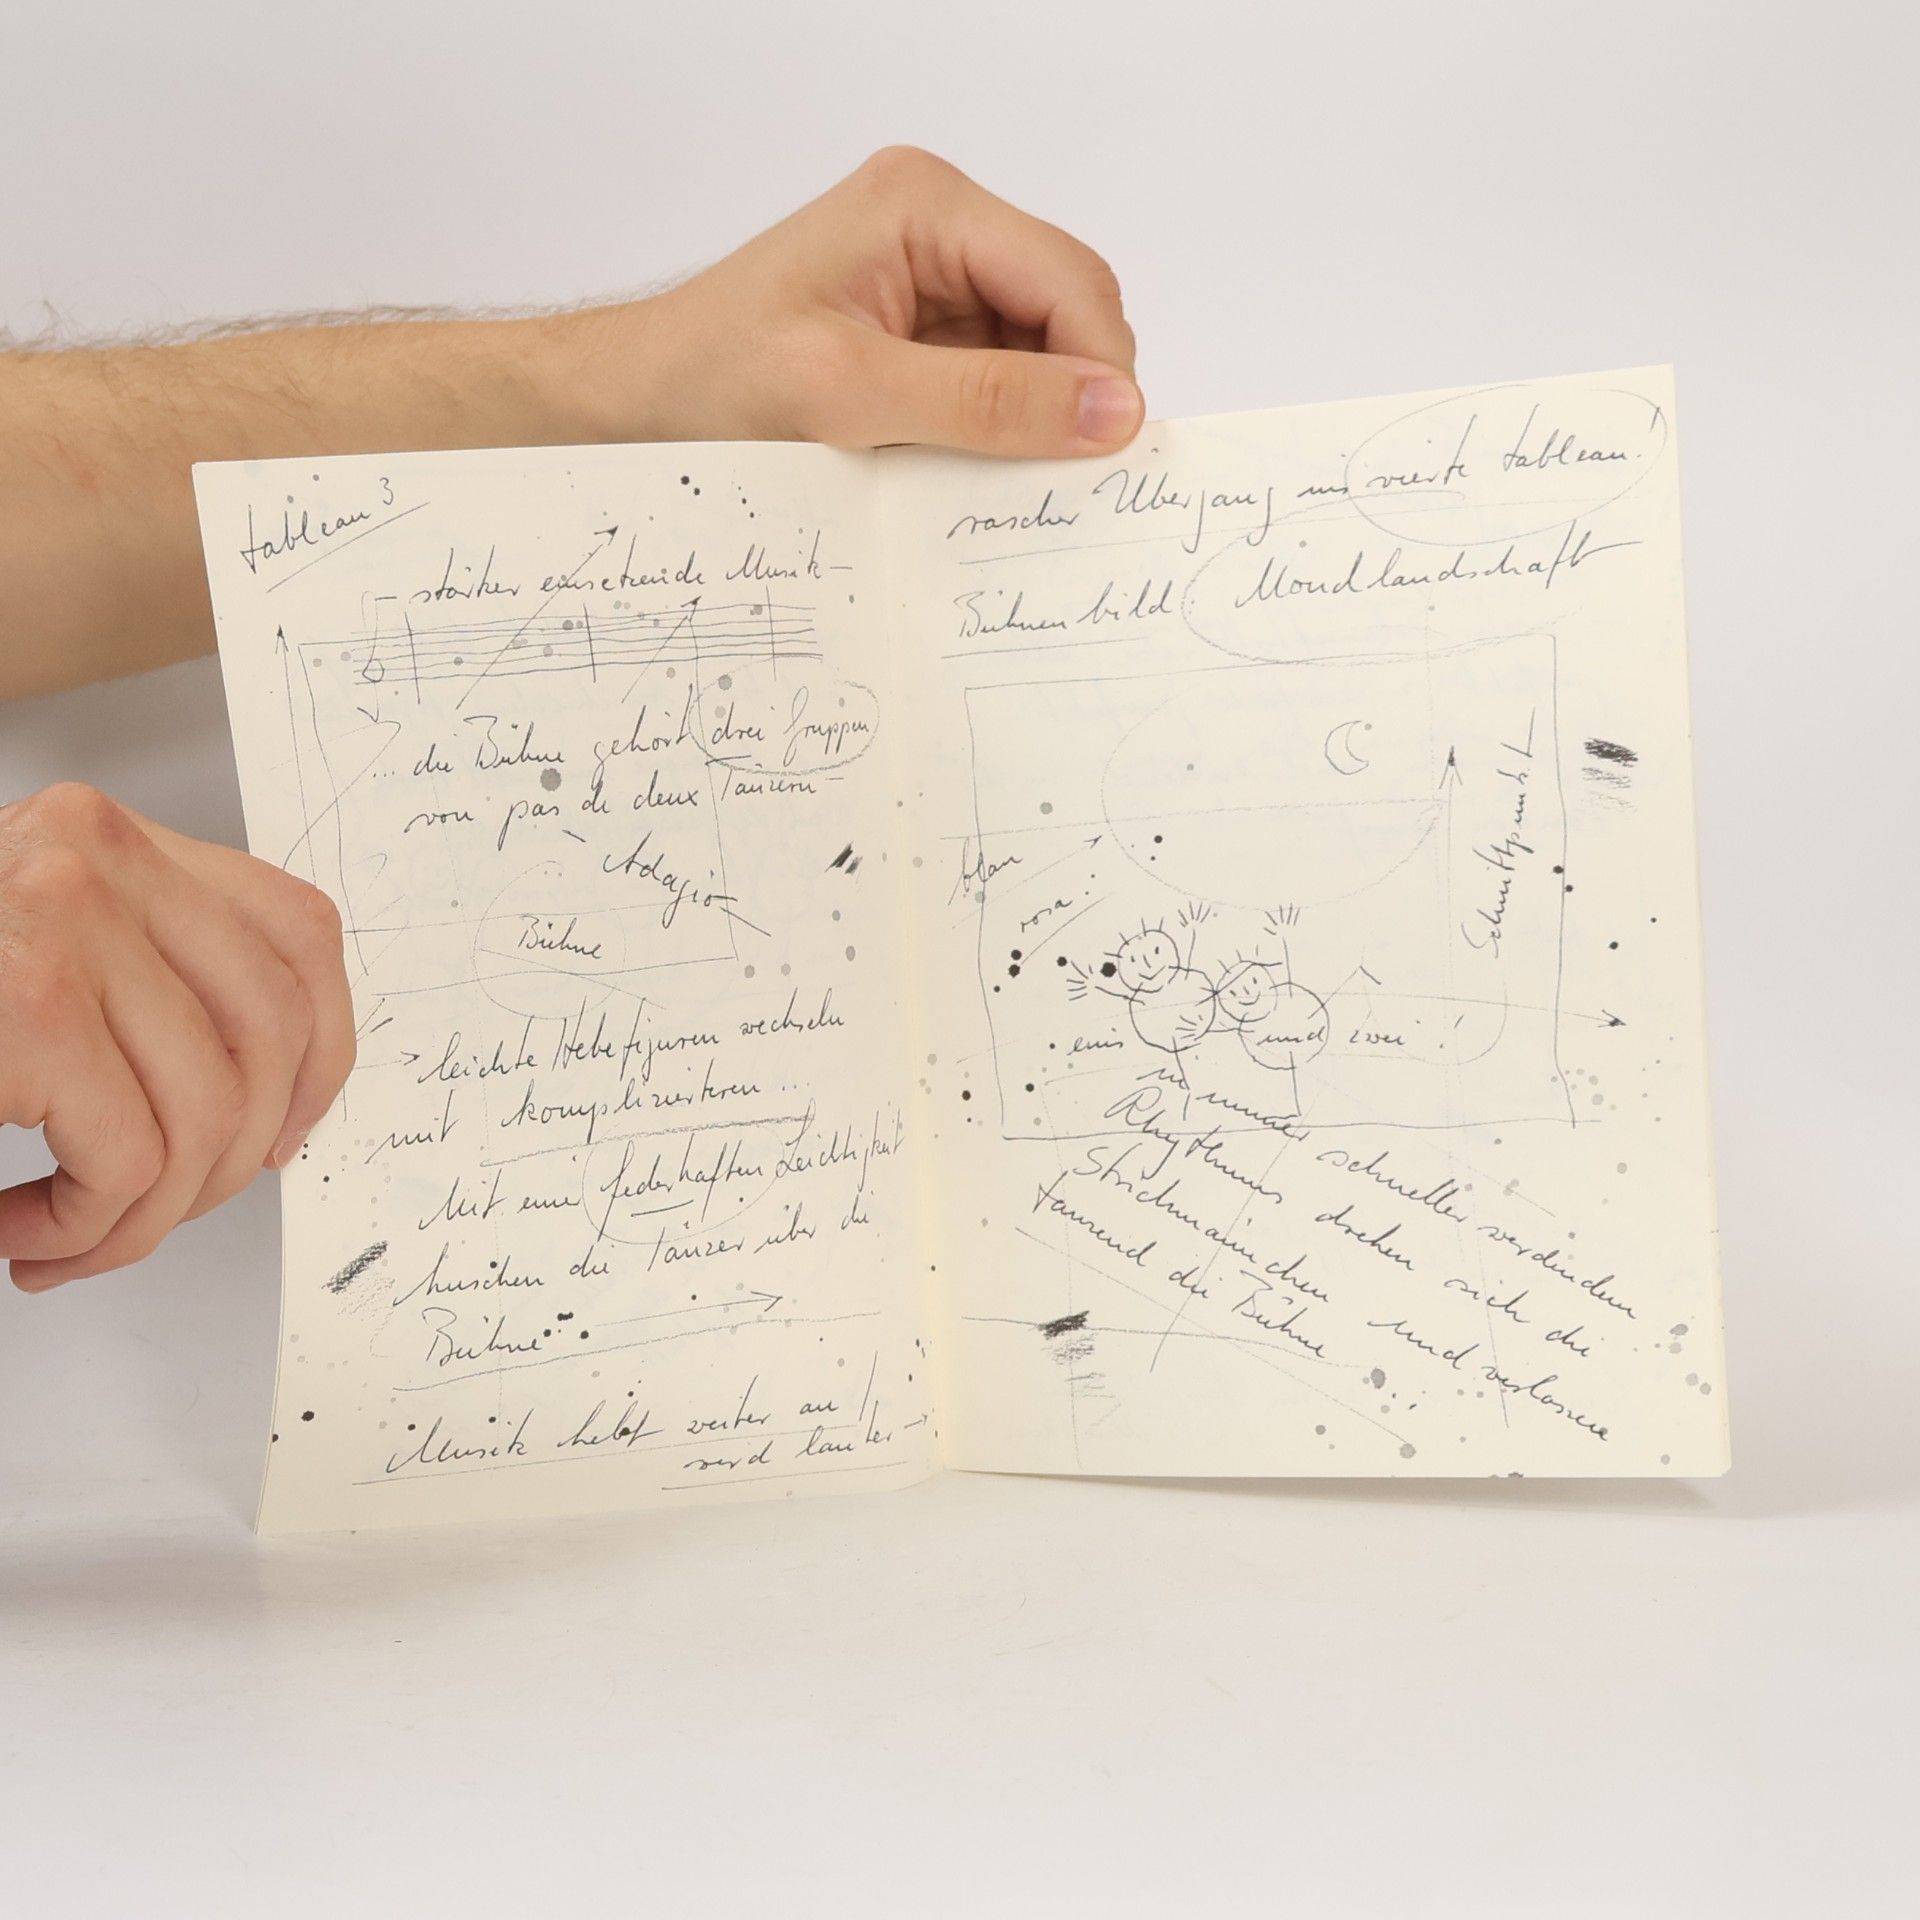 tableau 3
– stärker einsetzende Musik –
... die Bühne gehört drei Gruppen
von pas de deux Tänzern –
– Adagio –
Bühne
leichte Hebefiguren wechseln
mit komplizierteren ...
Mit einer federhaften Leichtigkeit
huschen die Tänzer über die
Bühne
Musik hebt weiter an /
wird lauter –
rascher Übergang ins vierte tableau!
Bühnenbild: Mondlandschaft
blau
rosa
Schnittpunkt
eins und zwei!
in immer schneller werdendem
Rhythmus drehen sich die
Strichmännchen und verlassen
tanzend die Bühne